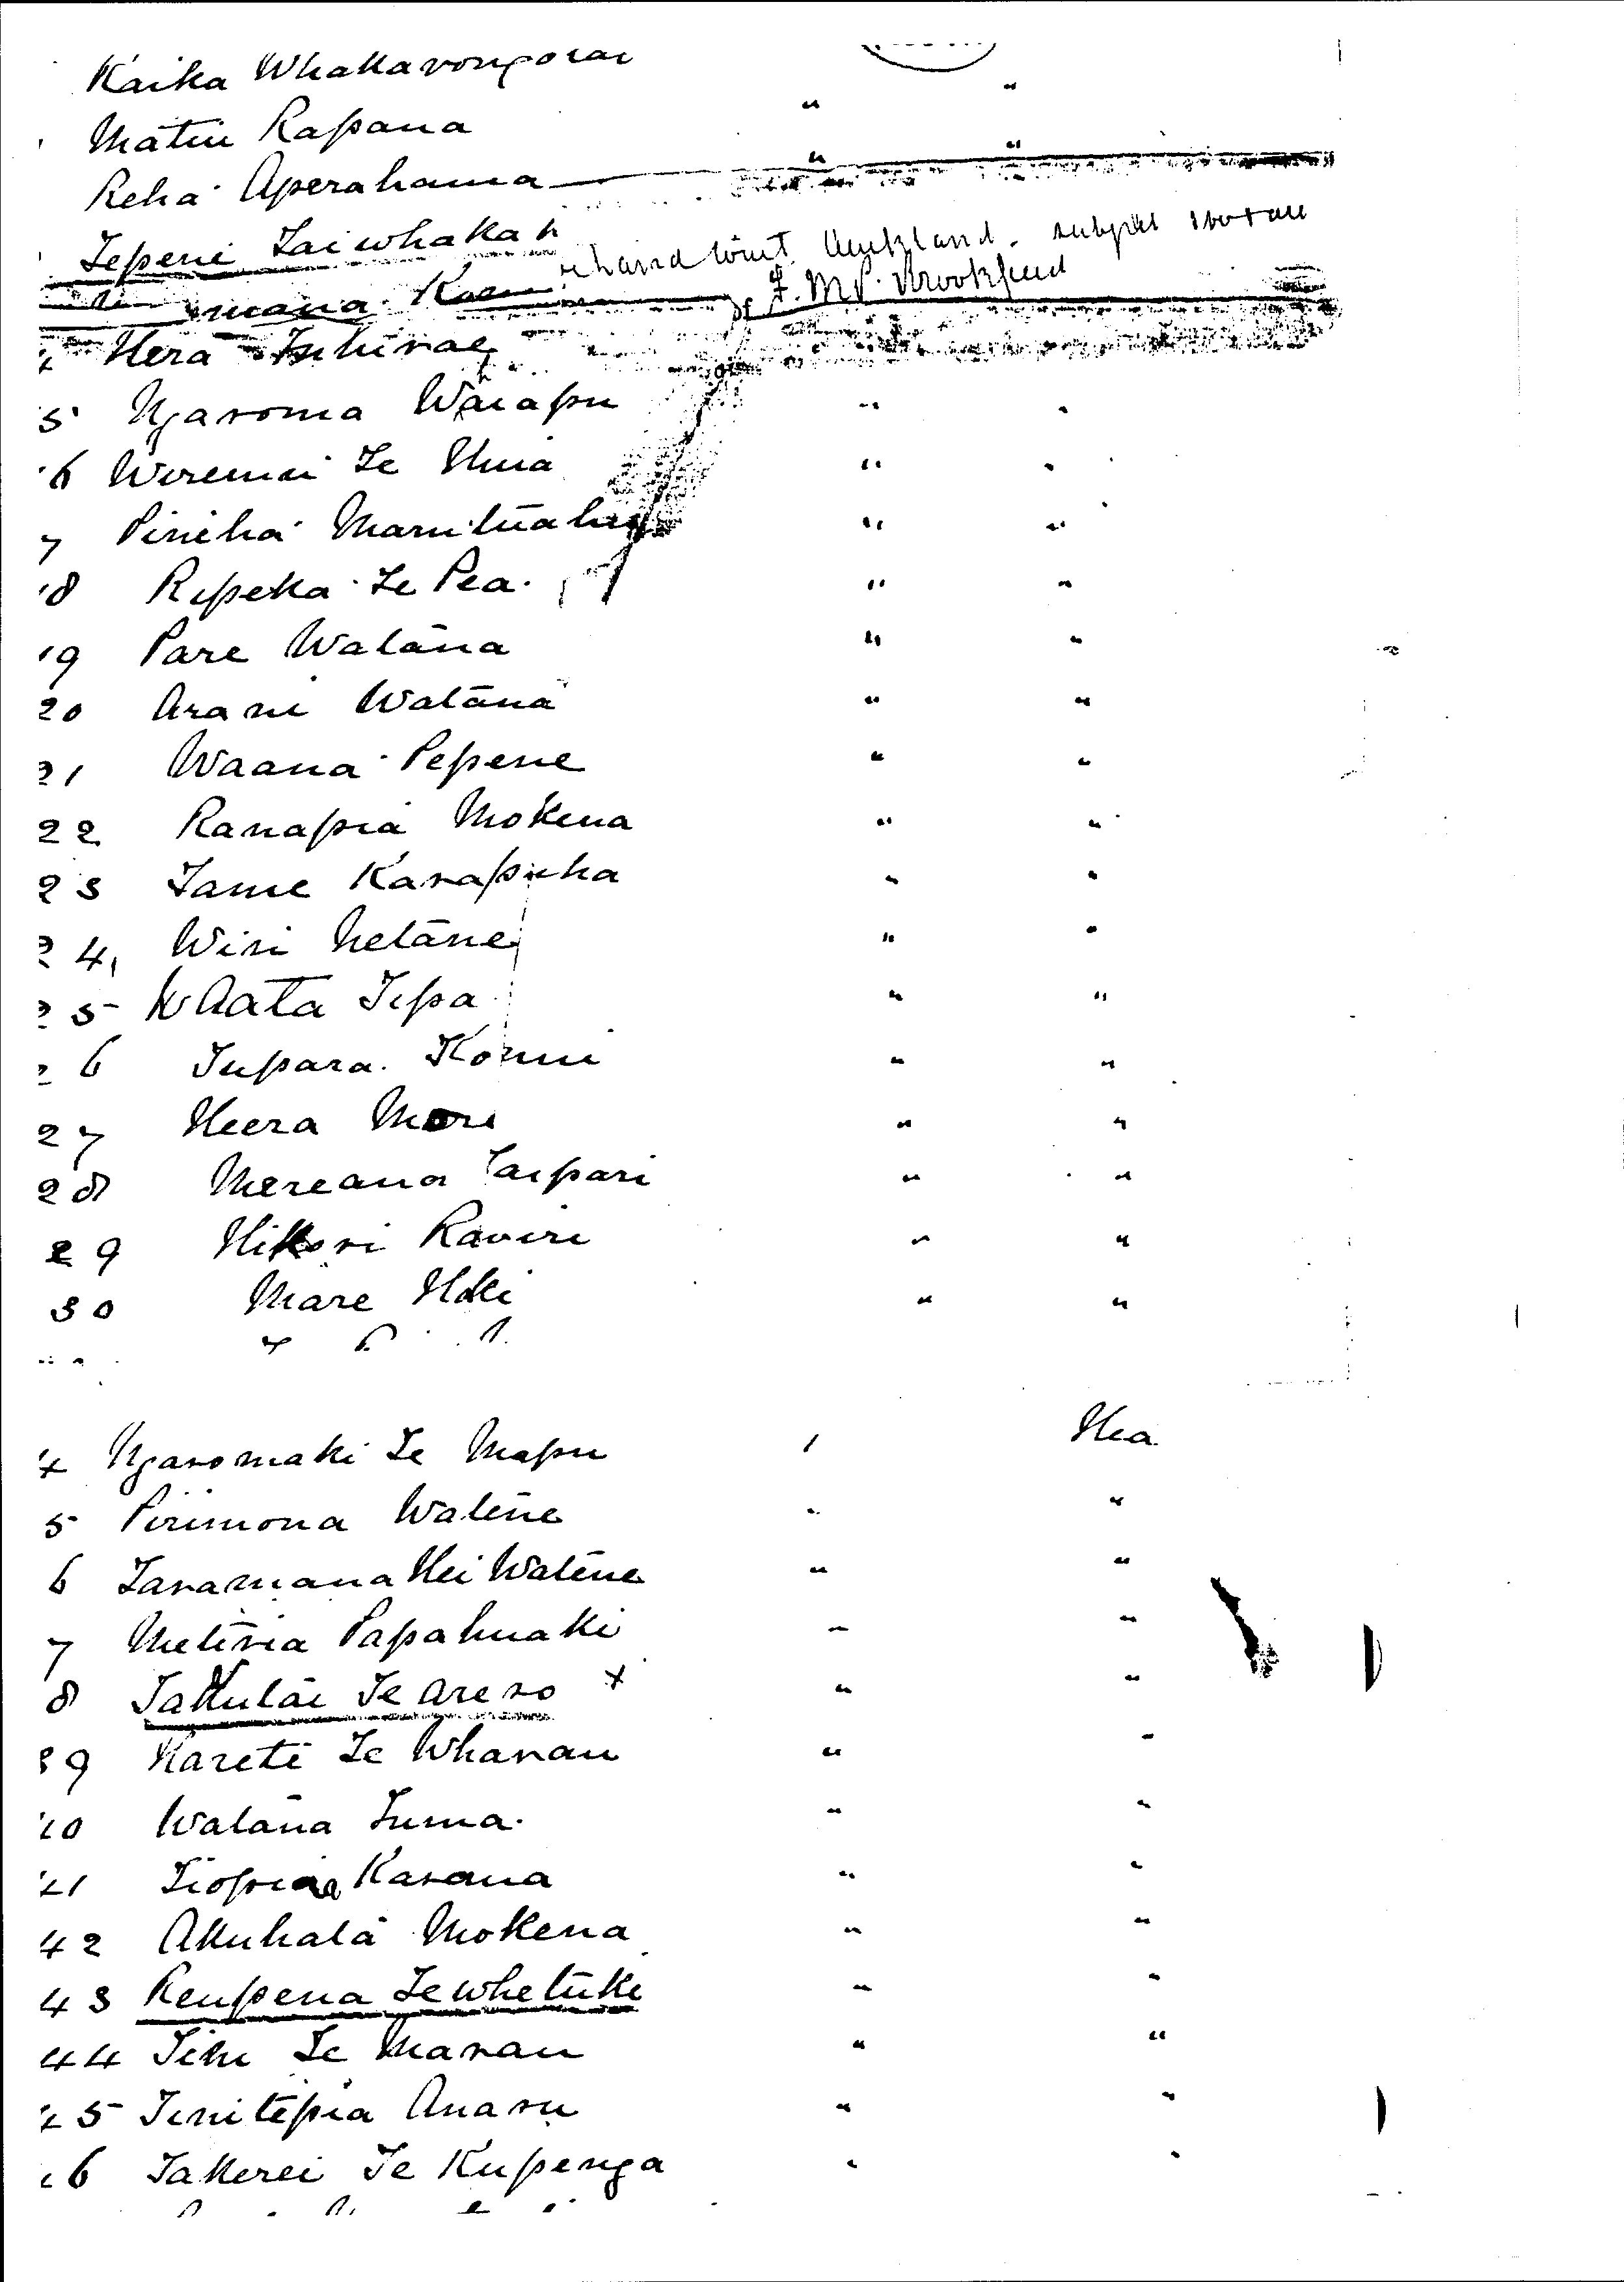 Kaika Whakarongotai
Matiu Rapana " "
Reha Aperahama " "
Tepene Taiwhaka
Auckland.
F. M. P. Brookfield
Hera
5 Ngaroma Waiapu " "
6 Wiremu Te Huia " "
7 Piniha Marutuahu " "
18 Ripeka Te Pea. " "
19 Pare Watana " "
20 Arani Watana " "
21 Waana Pepene " "
22 Ranapia Mokena " "
23 Tame Karapuha " "
24 Wiri Netane " "
25 Waata Tipa " "
26 Tupara. " "
27 Heera More " "
28 Mereana Taipari " "
29 Hikori Raviri " "
30 Mare Hoki " "
4 Ngaromaki Te Mapu 1 Hea
5 Pirimona Watene " "
6 Taramana Hei Watene " "
7 Metiria Papahuaki " "
8 Takutai Te Arero x " "
39 Kareti Te Wharau " "
40 Watana Tuma. " "
41 Tiopira Karaua " "
42 Akuhata Mokena " "
43 Reupena Te Whetuki " "
44 Te Marau " "
45 Tinitepia Anaru " "
46 Takerei Te Kupenga " "